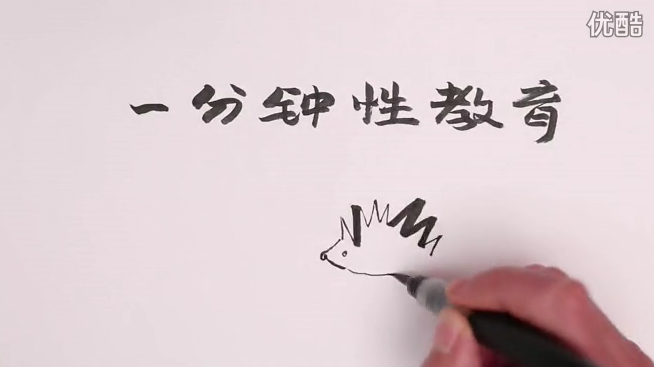 优酷
一分钟性教育